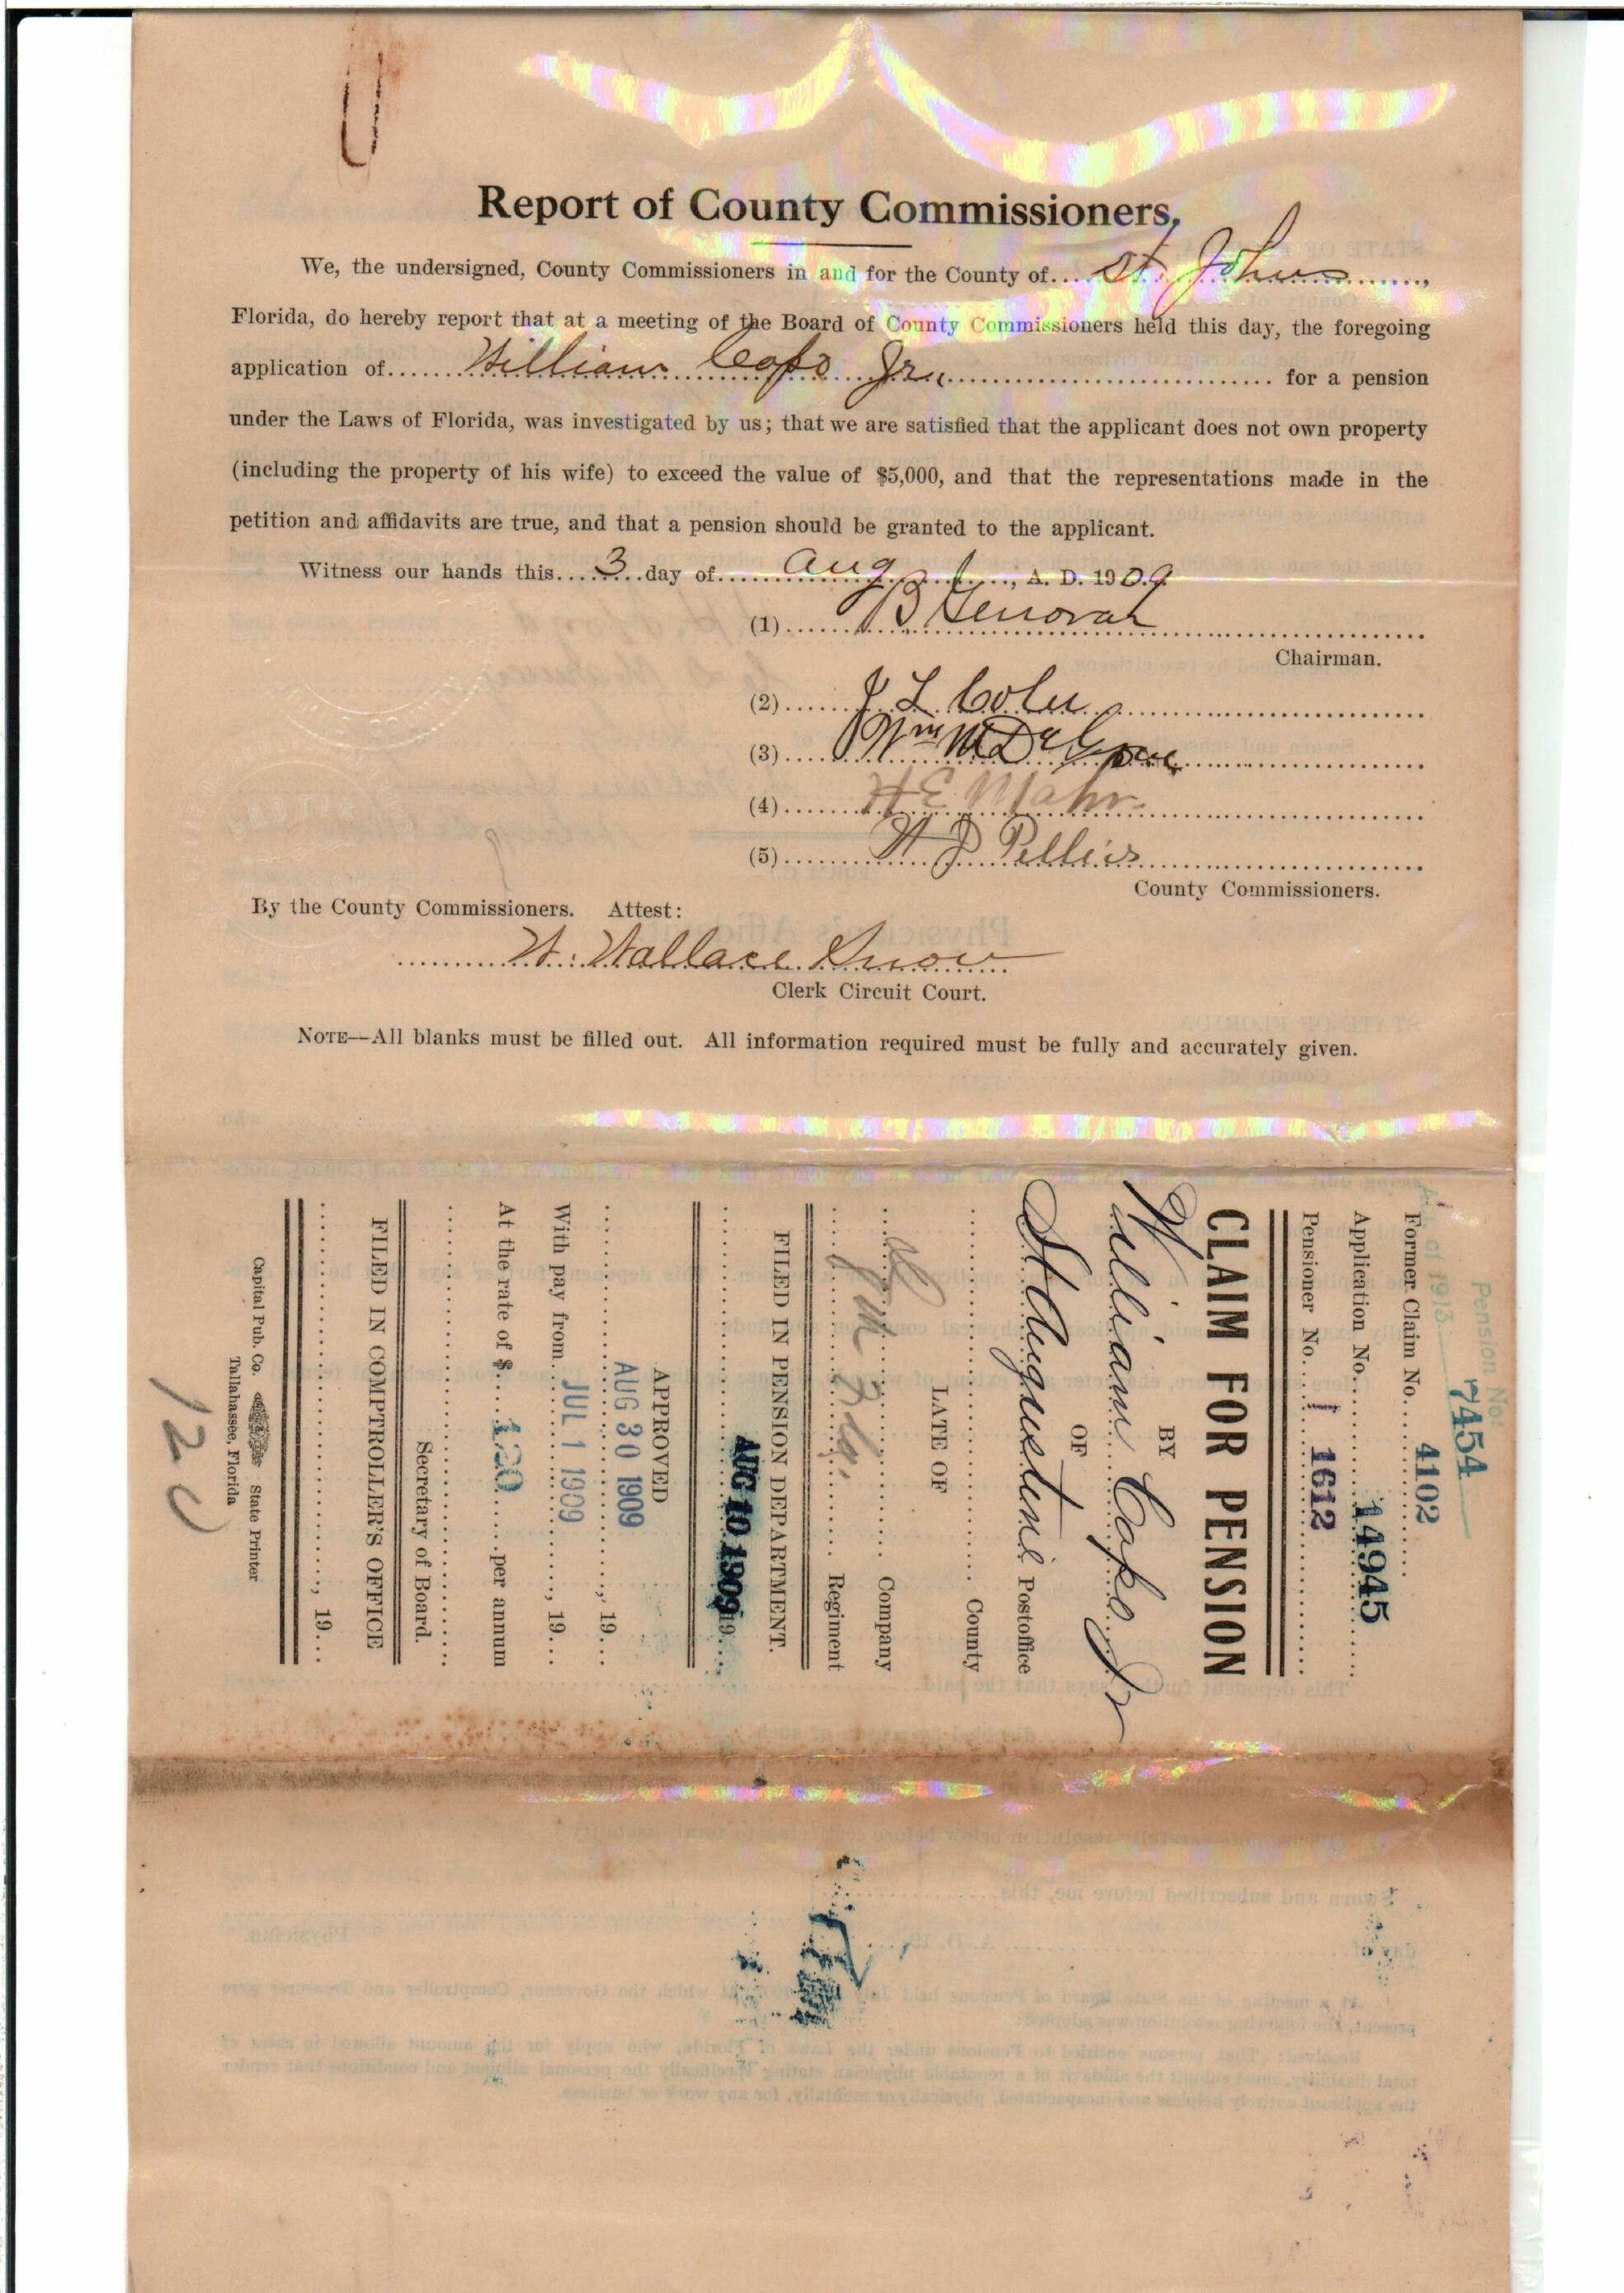 Report of County Commissioners.
We, the undersigned, County Commissioners in and for the County of....St. Johns....,
Florida, do hereby report that at a meeting of the Board of County Commissioners held this day, the foregoing
application of......William Capo Jr.......for a pension
under the Laws of Florida, was investigated by us; that we are satisfied that the applicant does not own property
(including the property of his wife) to exceed the value of $5,000, and that the representations made in the
petition and affidavits are true, and that a pension should be granted to the applicant.
Witness our hands this....3...day of......Aug......, A. D. 1909.
(1)......B Genovar......
Chairman.
(2)......
(3)......Wm
(4)......H E Mahr......
(5)......
County Commissioners.
By the County Commissioners. Attest:
......W. Wallace Snow......
Clerk Circuit Court.
NOTE—All blanks must be filled out. All information required must be fully and accurately given.
Pension No. 7454
Act of 1913
Former Claim No....4102......
Application No......14945......
Pensioner No......1612......
CLAIM FOR PENSION
BY
William Capo Jr
OF
St Augustine Postoffice
...... County
LATE OF
...... Company
...... Fla. ...... Regiment
FILED IN PENSION DEPARTMENT.
AUG 10 1909 19....
APPROVED
AUG 30 1909 ......, 19....
With pay from JUL 1 1909 ......, 19....
At the rate of $....120......per annum
Secretary of Board.
FILED IN COMPTROLLER'S OFFICE
......, 19....
Capital Pub. Co. State Printer
Tallahassee, Florida
120